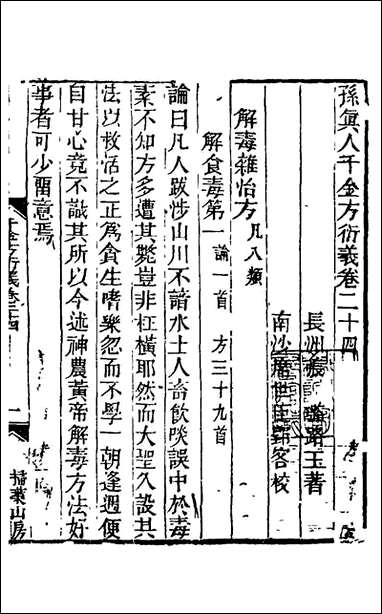 孫眞人千金方衍義卷二十四
長州張璐路玉著
南沙席世臣鄰客校
解毒雜治方凡八類
解食毒第一 論一首 方三十九首
論曰凡人跋涉山川不諳水土人畜飲啖誤中於毒
素不知方多遭其斃豈非枉橫耶然而大聖久設其
法以救活之正爲貪生嗜樂忽而不學一朝逢遇便
自甘心竟不識其所以今述神農黃帝解毒方法好
事者可少留意焉
千金方衍義卷二十四
一
掃葉山房